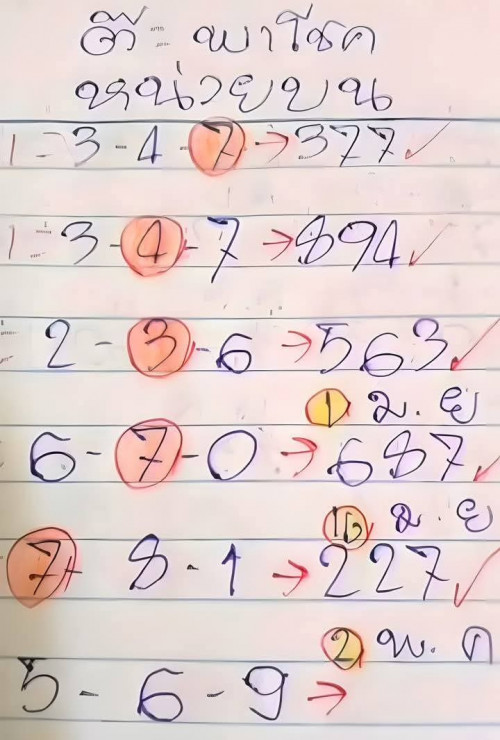 ตี๋ - พาโชค
หน่วยบน
1 - 3 - 4 - 7 → 377 ✓
1 - 3 - 4 - 7 → 894 ✓
2 - 3 - 6 → 563 ✓
1 มี. ย
6 - 7 - 0 → 687 ✓
16 มี. ย
7 - 8 - 1 → 227 ✓
2 พ. ค
5 - 6 - 9 →